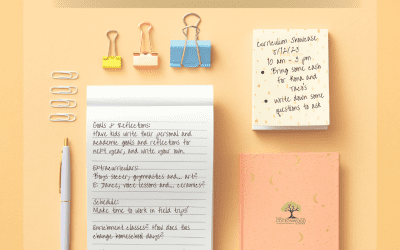 Goals & Reflections:
Have kids write their personal and
academic goals and reflections for
next year, and write your own.
Extracurriculars:
Boys soccer, gymnastics and... art?
E: Dance, voice lessons and... ceramics?
Schedule:
Make time to work in field trips?
Enrichment classes? How does this
change homeschool days?
Curriculum Showcase
5/12/23
10 am - 3 pm
• Bring some cash
for Kona and
Taco's
• Write down some
questions to ask